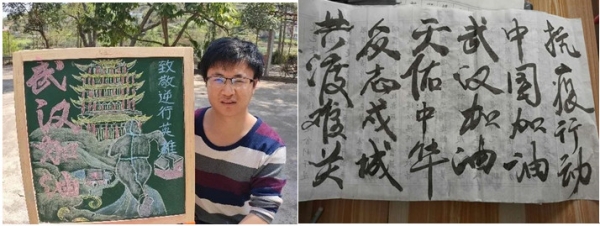 武汉加油
致敬逆行英雄
抗疫行动
中国加油
武汉加油
天佑中华
众志成城
共渡难关